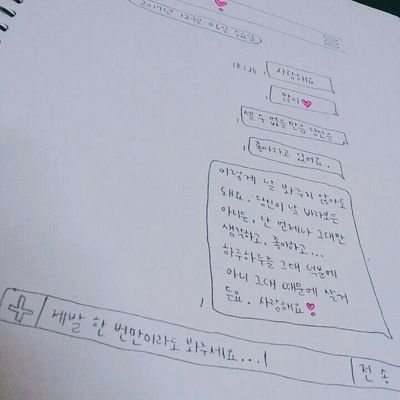 2017년 12월 06일 수요일
18:25
사랑해요
많이
셀 수 없을만큼 당신을
좋아하고 있어요.
이렇게 날 봐주지 않아도
돼요. 당신이 날 바라보든
아니든, 난 언제나 그대만
생각하고, 좋아하고...
하루하루를 그대 덕분에
아니 그대 때문에 살거
든요. 사랑해요
제발 한 번만이라도 봐주세요...
전송